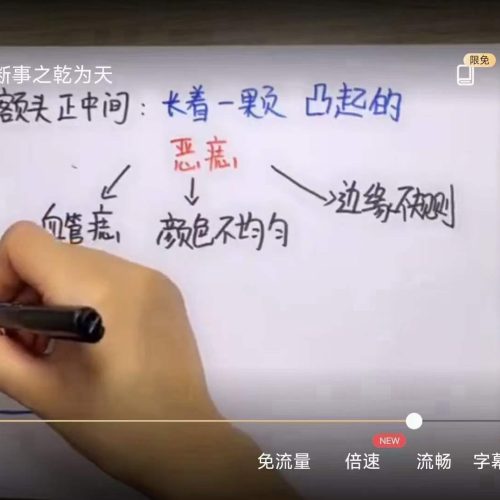 断事之乾为天
限免
额头正中间：长着一颗 凸起的
恶痣
血管痣 颜色不均匀 边缘不规则
NEW
免流量 倍速 流畅 字幕